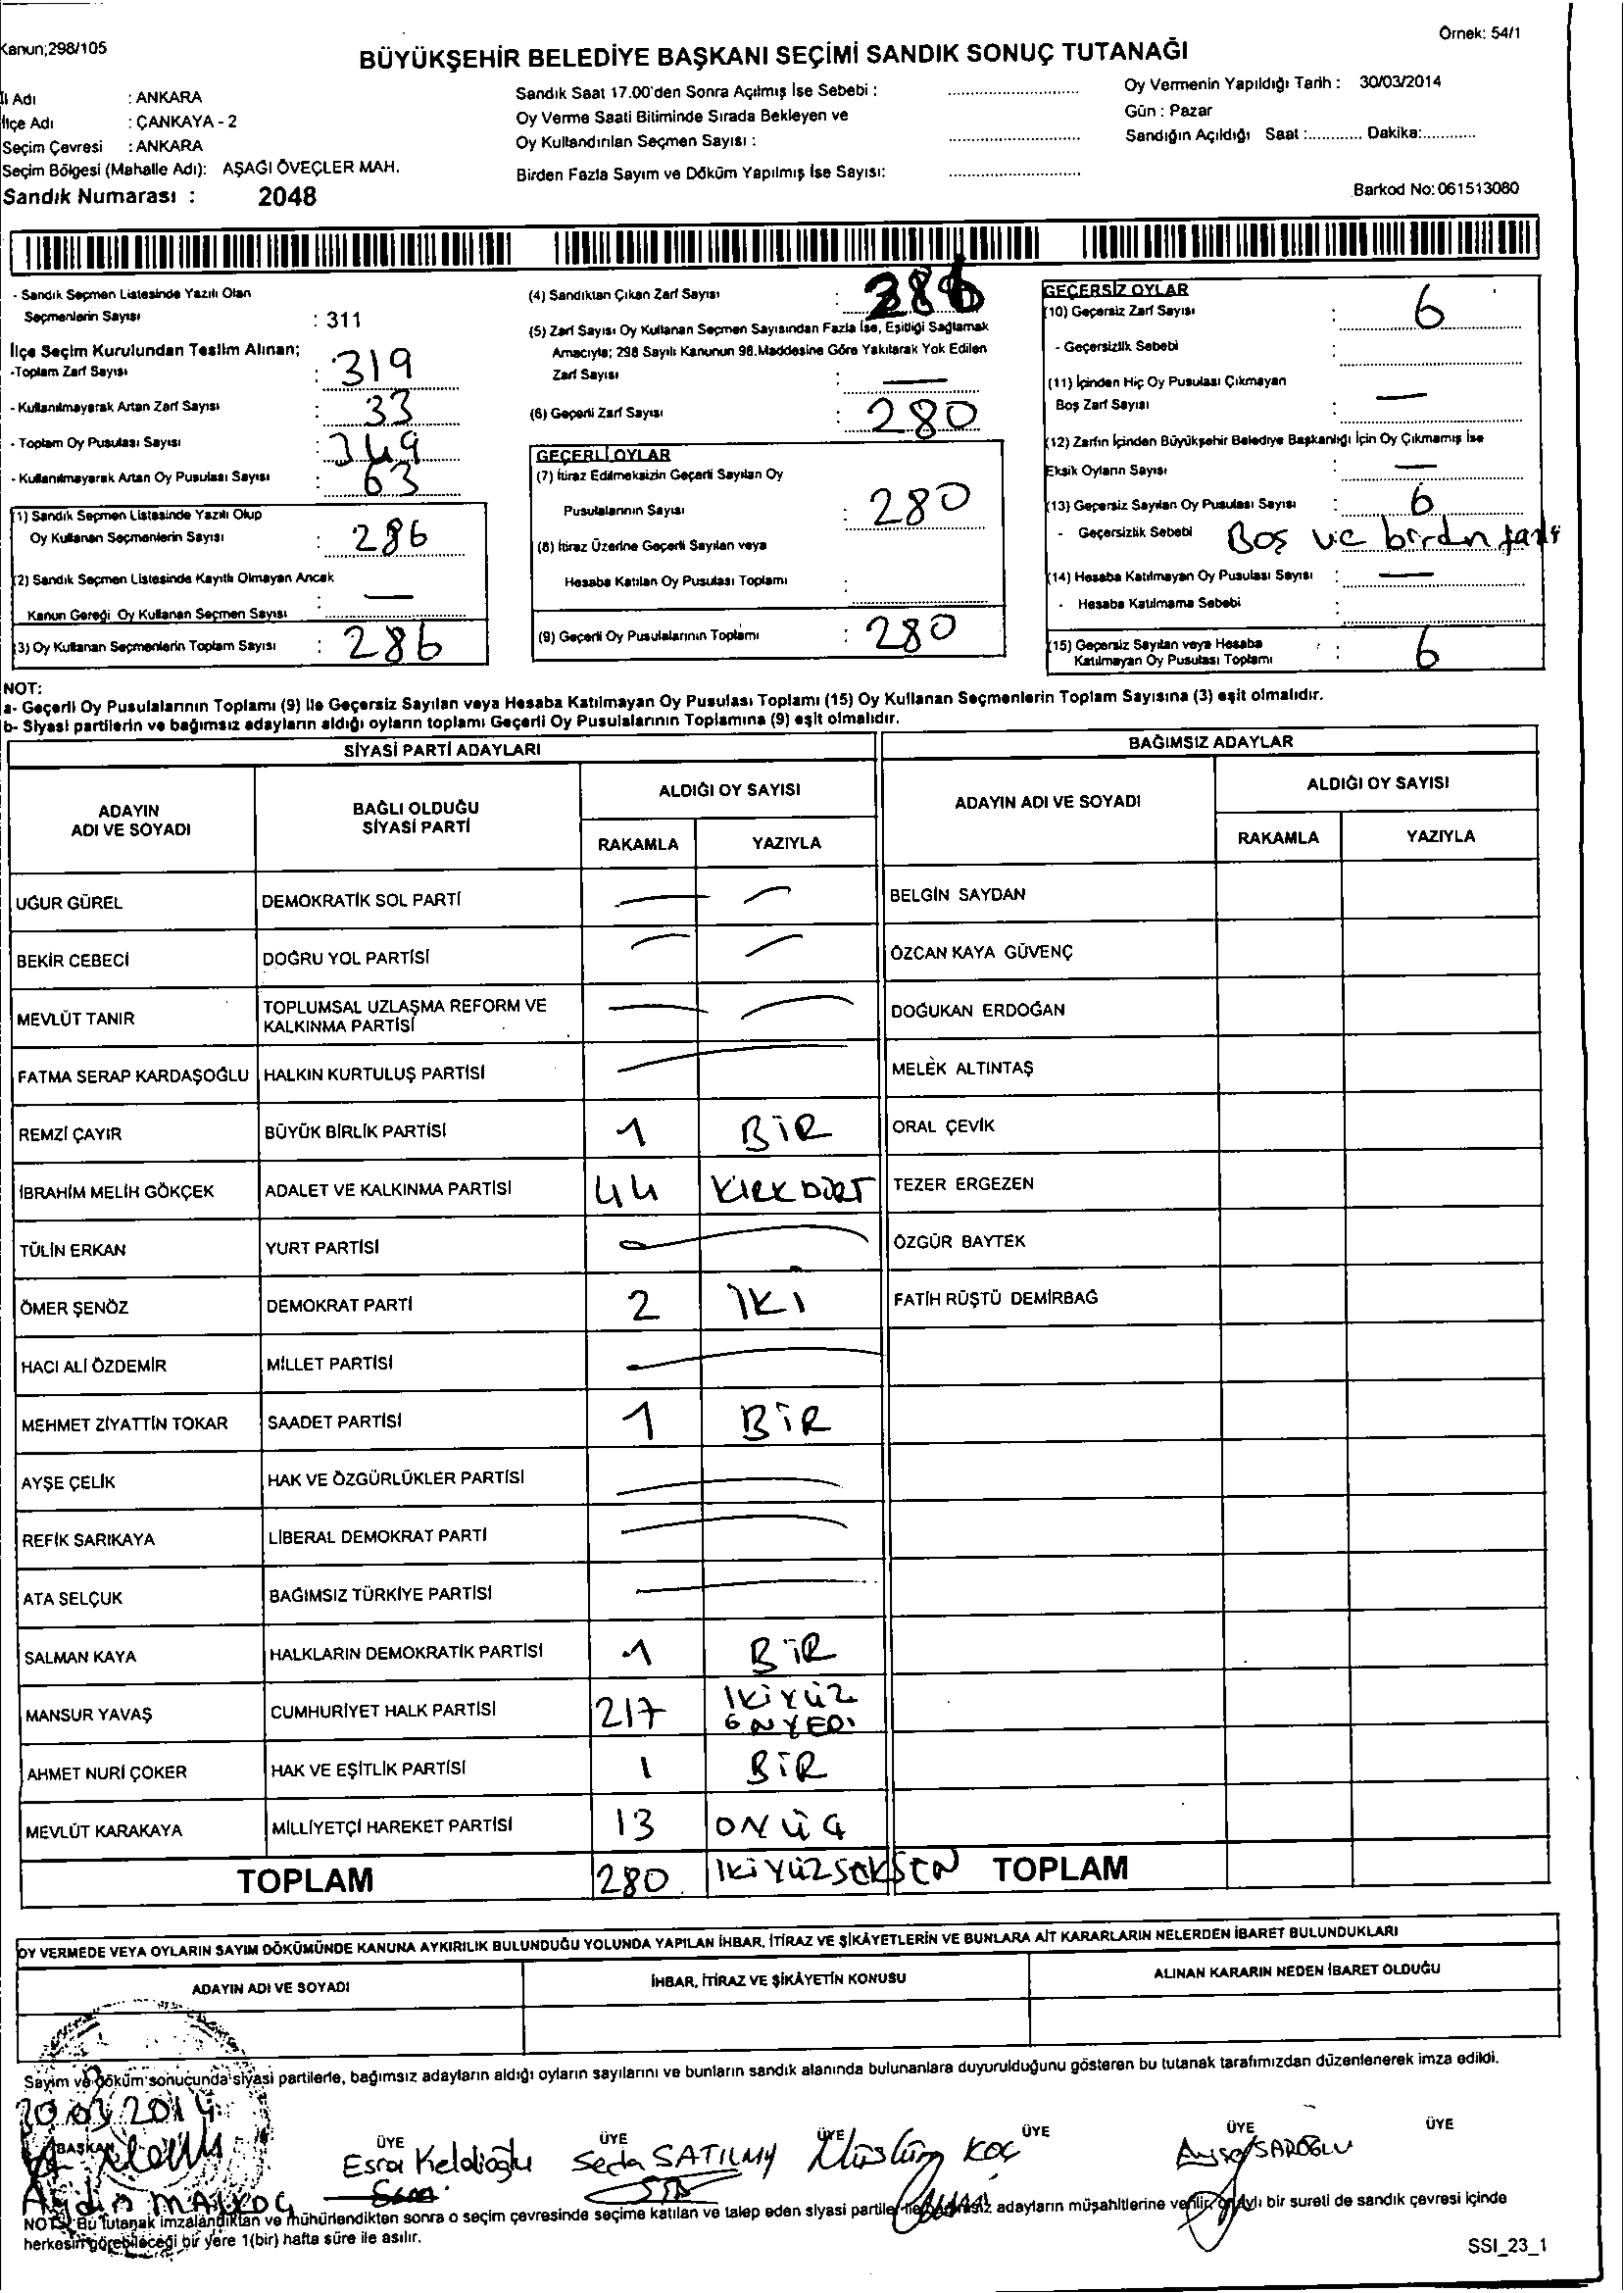 Kanun;298/105
Örnek: 54/1
BÜYÜKŞEHİR BELEDİYE BAŞKANI SEÇİMİ SANDIK SONUÇ TUTANAĞI
İl Adı : ANKARA
İlçe Adı : ÇANKAYA - 2
Seçim Çevresi : ANKARA
Seçim Bölgesi (Mahalle Adı): AŞAĞI ÖVEÇLER MAH.
Sandık Numarası : 2048
Sandık Saat 17.00'den Sonra Açılmış İse Sebebi :
Oy Verme Saati Bitiminde Sırada Bekleyen ve
Oy Kullandırılan Seçmen Sayısı :
Birden Fazla Sayım ve Döküm Yapılmış İse Sayısı:
Oy Vermenin Yapıldığı Tarih : 30/03/2014
Gün : Pazar
Sandığın Açıldığı Saat :............ Dakika:............
Barkod No: 061513080
- Sandık Seçmen Listesinde Yazılı Olan
Seçmenlerin Sayısı : 311
İlçe Seçim Kurulundan Teslim Alınan;
-Toplam Zarf Sayısı : 319
- Kullanılmayarak Artan Zarf Sayısı : 33
- Toplam Oy Pusulası Sayısı : 349
- Kullanılmayarak Artan Oy Pusulası Sayısı : 63
(1) Sandık Seçmen Listesinde Yazılı Olup
Oy Kullanan Seçmenlerin Sayısı : 286
(2) Sandık Seçmen Listesinde Kayıtlı Olmayan Ancak
Kanun Gereği Oy Kullanan Seçmen Sayısı : —
(3) Oy Kullanan Seçmenlerin Toplam Sayısı : 286
(4) Sandıktan Çıkan Zarf Sayısı : 286
(5) Zarf Sayısı Oy Kullanan Seçmen Sayısından Fazla İse, Eşitliği Sağlamak
Amacıyla; 298 Sayılı Kanunun 98.Maddesine Göre Yakılarak Yok Edilen
Zarf Sayısı : —
(6) Geçerli Zarf Sayısı : 280
GEÇERLİ OYLAR
(7) İtiraz Edilmeksizin Geçerli Sayılan Oy
Pusulalarının Sayısı : 280
(8) İtiraz Üzerine Geçerli Sayılan veya
Hesaba Katılan Oy Pusulası Toplamı :
(9) Geçerli Oy Pusulalarının Toplamı : 280
GEÇERSİZ OYLAR
(10) Geçersiz Zarf Sayısı : 6
- Geçersizlik Sebebi :
(11) İçinden Hiç Oy Pusulası Çıkmayan
Boş Zarf Sayısı : —
(12) Zarfın İçinden Büyükşehir Belediye Başkanlığı İçin Oy Çıkmamış İse
Eksik Oyların Sayısı : —
(13) Geçersiz Sayılan Oy Pusulası Sayısı : 6
- Geçersizlik Sebebi Boş ve birden fazla
(14) Hesaba Katılmayan Oy Pusulası Sayısı : —
- Hesaba Katılmama Sebebi :
(15) Geçersiz Sayılan veya Hesaba
Katılmayan Oy Pusulası Toplamı : 6
NOT:
a- Geçerli Oy Pusulalarının Toplamı (9) ile Geçersiz Sayılan veya Hesaba Katılmayan Oy Pusulası Toplamı (15) Oy Kullanan Seçmenlerin Toplam Sayısına (3) eşit olmalıdır.
b- Siyasi partilerin ve bağımsız adayların aldığı oyların toplamı Geçerli Oy Pusulalarının Toplamına (9) eşit olmalıdır.
SİYASİ PARTİ ADAYLARI
BAĞIMSIZ ADAYLAR
ADAYIN
ADI VE SOYADI
BAĞLI OLDUĞU
SİYASİ PARTİ
ALDIĞI OY SAYISI
RAKAMLA YAZIYLA
ADAYIN ADI VE SOYADI
ALDIĞI OY SAYISI
RAKAMLA YAZIYLA
UĞUR GÜREL DEMOKRATİK SOL PARTİ — — BELGİN SAYDAN
BEKİR CEBECİ DOĞRU YOL PARTİSİ — — ÖZCAN KAYA GÜVENÇ
MEVLÜT TANIR TOPLUMSAL UZLAŞMA REFORM VE
KALKINMA PARTİSİ — — DOĞUKAN ERDOĞAN
FATMA SERAP KARDAŞOĞLU HALKIN KURTULUŞ PARTİSİ — MELEK ALTINTAŞ
REMZİ ÇAYIR BÜYÜK BİRLİK PARTİSİ 1 BİR ORAL ÇEVİK
İBRAHİM MELİH GÖKÇEK ADALET VE KALKINMA PARTİSİ 44 KIRKDÖRT TEZER ERGEZEN
TÜLİN ERKAN YURT PARTİSİ — ÖZGÜR BAYTEK
ÖMER ŞENÖZ DEMOKRAT PARTİ 2 İKİ FATİH RÜŞTÜ DEMİRBAĞ
HACI ALİ ÖZDEMİR MİLLET PARTİSİ —
MEHMET ZİYATTİN TOKAR SAADET PARTİSİ 1 BİR
AYŞE ÇELİK HAK VE ÖZGÜRLÜKLER PARTİSİ —
REFİK SARIKAYA LİBERAL DEMOKRAT PARTİ —
ATA SELÇUK BAĞIMSIZ TÜRKİYE PARTİSİ —
SALMAN KAYA HALKLARIN DEMOKRATİK PARTİSİ 1 BİR
MANSUR YAVAŞ CUMHURİYET HALK PARTİSİ 217 İKİYÜZ
ONYEDİ
AHMET NURİ ÇOKER HAK VE EŞİTLİK PARTİSİ 1 BİR
MEVLÜT KARAKAYA MİLLİYETÇİ HAREKET PARTİSİ 13 ONÜÇ
TOPLAM 280 İKİYÜZSEKSEN TOPLAM
OY VERMEDE VEYA OYLARIN SAYIM DÖKÜMÜNDE KANUNA AYKIRILIK BULUNDUĞU YOLUNDA YAPILAN İHBAR, İTİRAZ VE ŞİKÂYETLERİN VE BUNLARA AİT KARARLARIN NELERDEN İBARET BULUNDUKLARI
ADAYIN ADI VE SOYADI İHBAR, İTİRAZ VE ŞİKÂYETİN KONUSU ALINAN KARARIN NEDEN İBARET OLDUĞU
Sayım ve döküm sonucunda siyasi partilerle, bağımsız adayların aldığı oyların sayılarını ve bunların sandık alanında bulunanlara duyurulduğunu gösteren bu tutanak tarafımızdan düzenlenerek imza edildi.
30.03.2014
BAŞKAN ÜYE ÜYE ÜYE ÜYE ÜYE ÜYE
Esra Keloğlu Seda SATILMIŞ Müslüm KOÇ Aysel SAROĞLU
Aydın MALKOÇ
NOT: Bu tutanak imzalandıktan ve mühürlendikten sonra o seçim çevresinde seçime katılan ve talep eden siyasi partiler ile bağımsız adayların müşahitlerine verilir, onaylı bir sureti de sandık çevresi içinde
herkesin görebileceği bir yere 1(bir) hafta süre ile asılır.
SSI_23_1